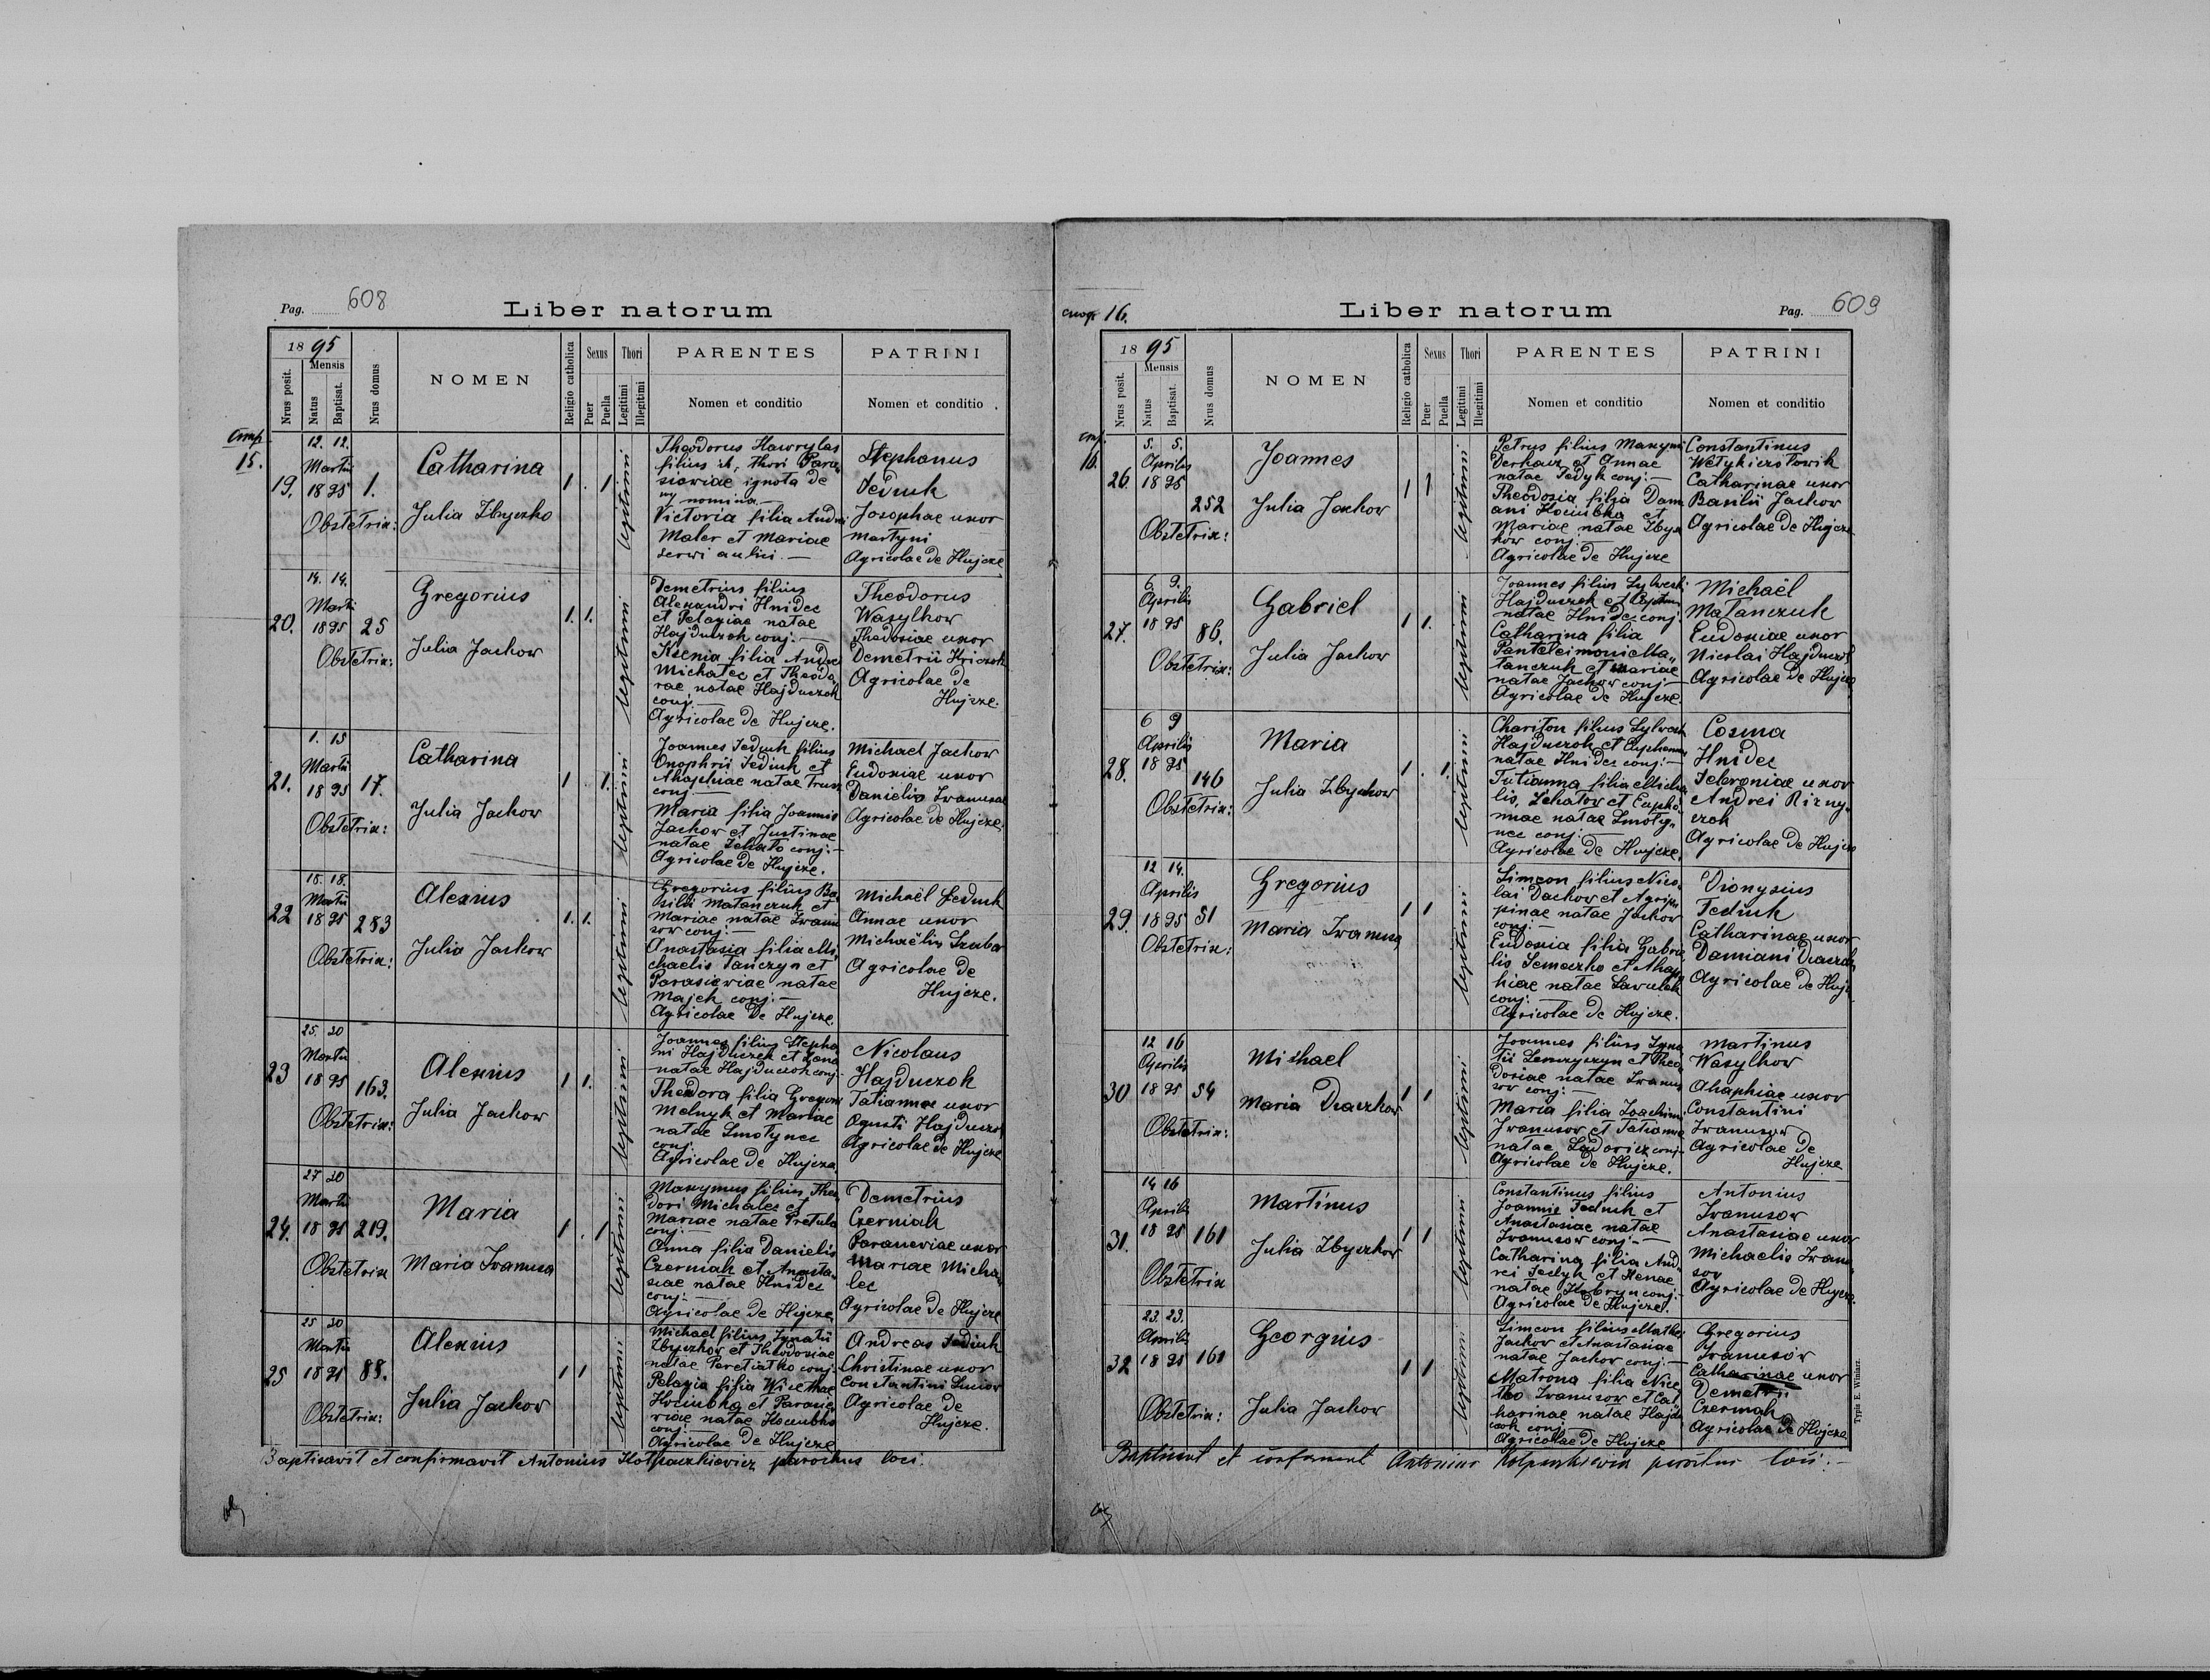 Pag. 608
Liber natorum
1895
Mensis
Nrus posit.
Natus
Baptisat.
Nrus domus
NOMEN
Religio catholica
Sexus
Puer
Puella
Thori
Legitimi
Illegitimi
PARENTES
Nomen et conditio
PATRINI
Nomen et conditio
15.
19.
12. 12.
Martii
1895
1.
Obstetrix:
Catharina
Julia Zbyczko
1 . 1
legitimi
Theodorus Hawrylas
filius il, thori Para
siewiae ignota de
nomina
Victoria filia Andrei
Maler et Mariae
servi aulici.—
Stephanus
Fediuk
Josephae uxor
Martyni
Agricolae de Hujcze
20.
14. 14.
Martii
1895
25
Obstetrix:
Gregorius
Julia Jachow
1. 1.
legitimi
Demetrius filius
Alexandri Hnidec
et Pelagiae natae
Hajduczok conj:—
Ksenia filia Andrei
Michalec et Theodo
rae natae Hajduczok
conj.—
Agricolae de Hujcze.
Theodorus
Wasylkow
Theodosiae uxor
Demetrii
Agricolae de
Hujcze.
21.
1. 15
Martii
1895
17.
Obstetrix:
Catharina
Julia Jachow
1 . 1.
legitimi
Joannes Fediuk filius
Onophrii Fediuk et
Ahaphiae natae
conj:—
Maria filia Joannis
Jachow et Justinae
natae conj.—
Agricolae de Hujcze.
Michael Jachow
Eudoxiae uxor
Danielis Iwanusow
Agricolae de Hujcze.
22
18. 18.
Martii
1895
283
Obstetrix:
Alexius
Julia Jachow
1. 1.
legitimi
Gregorius filius Ba
silii Matanczuk et
Mariae natae Iwanu
sow conj:—
Anastasia filia Mi
chaelis Tanczyn et
Parasiewiae natae
Majch conj:—
Agricolae de Hujcze.
Michaël Fediuk
Annae uxor
Michaëlis
Agricolae de
Hujcze.
23
25. 30
Martii
1895
163.
Obstetrix:
Alexius
Julia Jachow
1 1.
legitimi
Joannes filius Stepha
ni Hajduczek et
natae Hajduczok conj.
Theodora filia Gregorii
Melnyk et Mariae
natae Smotynec
conj.
Agricolae de Hujcza
Nicolaus
Hajduczok
Tatiannae uxor
Agricolae de Hujcze
24.
27 30
Martii
1895
219.
Obstetrix
Maria
Maria Iwanusa
1 . 1
legitimi
Maxymus filius Theo
dori Michalec et
Mariae natae Pretula
conj:—
Anna filia Danielis
Czerniak et Anasta
siae natae Hnidec
conj:—
Agricolae de Hujcze
Demetrius
Czerniak
uxor
Mariae Micha
lec
Agricolae de Hujcze
25
25 30
Martii
1895
88.
Obstetrix:
Alexius
Julia Jachow
1 1
legitimi
Michael filius Ignatii
Zbyczkow et Theodosiae
natae Peretiatko conj.
Pelagia filia
Hocunbka et
natae
conj.
Agricolae de Hujcze
Andreas Fediuk
Christinae uxor
Constantini
Agricolae de
Hujcze.
Baptisavit et confirmavit Antonius Kolpaczkiewicz parochus loci.
16.
Liber natorum
Pag. 609
1895
Mensis
Nrus posit.
Natus
Baptisat.
Nrus domus
NOMEN
Religio catholica
Sexus
Puer
Puella
Thori
Legitimi
Illegitimi
PARENTES
Nomen et conditio
PATRINI
Nomen et conditio
16.
26.
5. 5.
Aprilis
1895
252
Obstetrix:
Joannes
Julia Jachow
1 1
legitimi
Petrus filius Maxymi
et Annae
natae Fedyk conj:—
Theodosia filia Dam
ani Hocunbka et
Mariae natae Zbycz
kow conj:—
Agricolae de Hujcze
Constantinus
Catharinae uxor
Basilii Jachow
Agricolae de Hujcze
27.
6 9.
Aprilis
1895
86.
Obstetrix:
Gabriel
Julia Jachow
1 1.
legitimi
Joannes filius Sylvestri
Hajduczok et
natae Hnidec conj.
Catharina filia
Panteleimonis Ma„
tanczuk et Mariae
natae Jachow conj.—
Agricolae de Hujcze.
Michaël
Matanczuk
Eudoxiae uxor
Nicolai Hajduczok
Agricolae de Hujcze
28.
6 9
Aprilis
1895
146
Obstetrix:
Maria
Julia Zbyczkow
1 . 1.
legitimi
Chariton filius Sylvestri
Hajduczok et
natae Hnidec conj:—
Tatianna filia Micha
lis et Euphe
miae natae Smoty„
nec conj:—
Agricolae de Hujcze.
Cosma
Hnidec
uxor
Andrei Rizny„
czok
Agricolae de Hujcze
29.
12 14.
Aprilis
1895
51
Obstetrix:
Gregorius
Maria Iwanusa
1 1
legitimi
Simeon filius Nico
lai Dachow et Agrip
pinae natae Jachow
conj:—
Eudoxia filia Gabrie
lis Semeczko et Ahap
hiae natae
conj:—
Agricolae de Hujcze.
Dionysius
Fediuk
Catharinae uxor
Damiani
Agricolae de Hujc
30
12 16
Aprilis
1895
54
Obstetrix:
Michael
Maria Draczkow
1 1
legitimi
Joannes filius Igna
tii et Theo
dosiae natae Iwanu
sow conj:—
Maria filia Joachimi
Iwanusow et Tatiannae
natae conj.
Agricolae de Hujcze.
Martinus
Wasylkow
Ahaphiae uxor
Constantini
Iwanusow
Agricolae de
Hujcze
31.
14 16
Aprilis
1895
161
Obstetrix
Martinus
Julia Zbyczkow
1 1
legitimi
Constantinus filius
Joannis Fediuk et
Anastasiae natae
Iwanusow conj:—
Catharina filia And
rei Fedyk et
natae conj.
Agricolae de Hujcze.
Antonius
Iwanusow
Anastasiae uxor
Michaelis Iwanu
sow
Agricolae de Hujcze.
32
23. 23.
Aprilis
1895
161
Obstetrix:
Georgius
Julia Jachow
1 1
legitimi
Simeon filius Mathei
Jachow et Anastasiae
natae Jachow conj:—
Matrona filia Nice
tae Iwanusow et Cat
harinae natae Hajdu
czok conj.
Agricolae de Hujcze
Gregorius
Iwanusow
Catharinae uxor
Demetrii
Czerniak
Agricolae de Hujcze
et Antonius loci.—
Typis E. Winiarz.